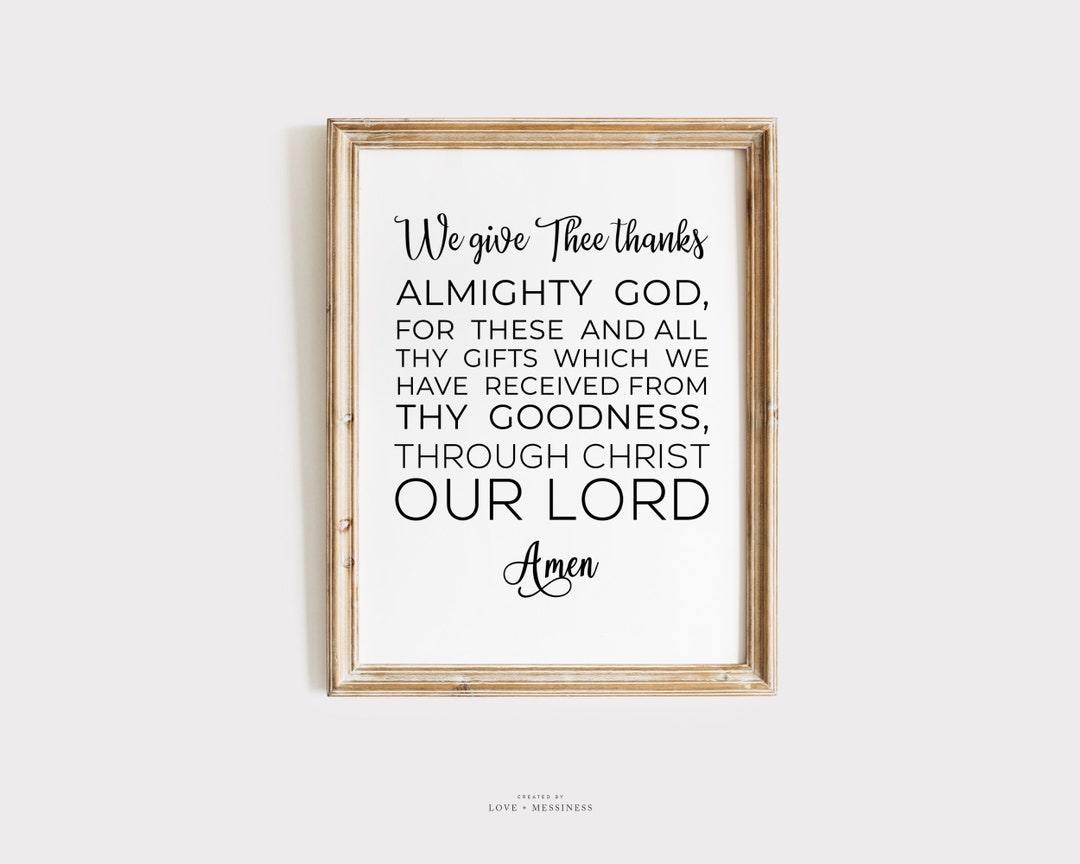 We give Thee thanks
ALMIGHTY GOD,
FOR THESE AND ALL
THY GIFTS WHICH WE
HAVE RECEIVED FROM
THY GOODNESS,
THROUGH CHRIST
OUR LORD
Amen
CREATED BY
LOVE + MESSINESS